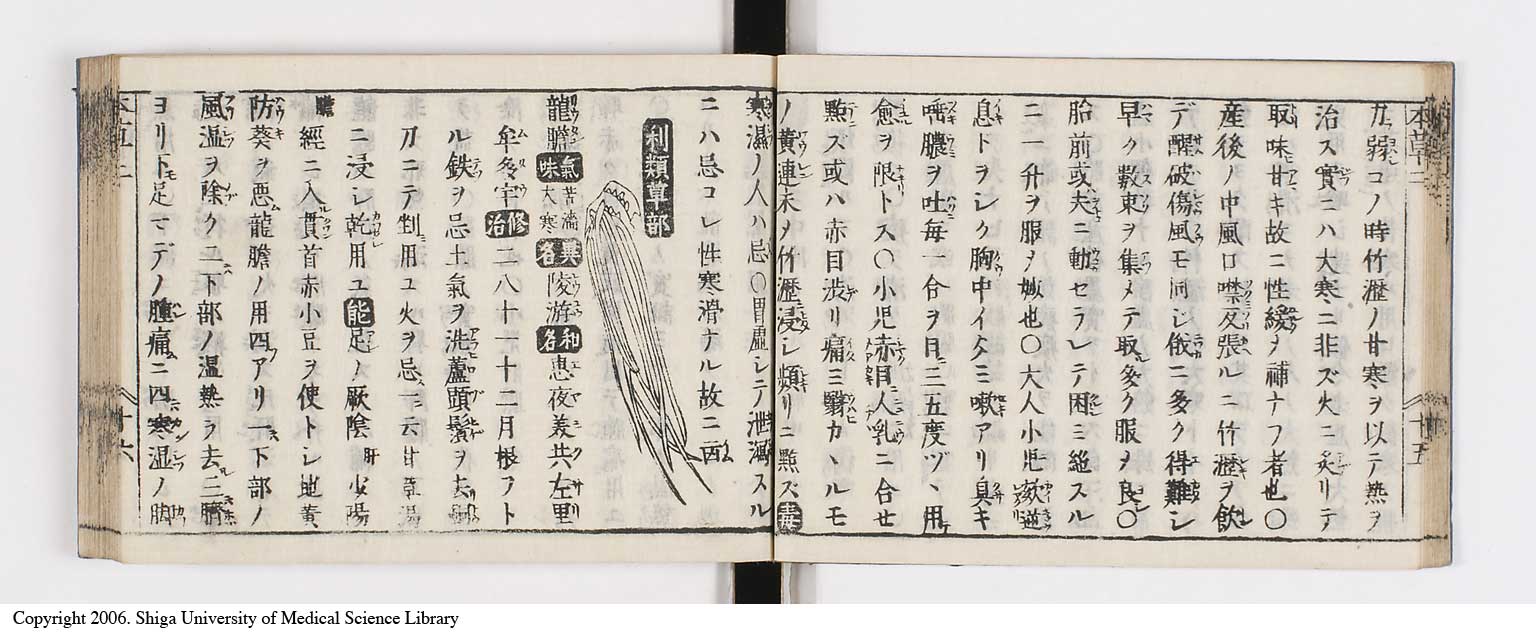 本草二
十五
力弱コノ時竹瀝ノ甘寒ヲ以テ熱ヲ
治ス實ニハ大寒ニ非ズ火ニ炙リテ
取味甘キ故ニ性緩ヲ補ナフ者也〇
産後ノ中風口噤反張ルニ竹瀝ヲ飲
デ醒破傷風モ同シ俄ニ多ク得難シ
早ク數束ヲ集メテ取多ク服ヲ良〇
胎前或夫ニ動セラレテ困ミ絶スル
ニ一升ヲ服ヲ妙也〇大人小児欬逆
息ドヲシク胸中イタミ嗽アリ臭キ
唾膿ヲ吐毎一合ヲ日ニ五度ヅヽ用
愈ヲ限トス〇小児赤目人乳ニ合せ
點ス或ハ赤目渋リ痛ミ翳カヽルモ
ノ黄連末ヲ竹瀝浸シ頻リニ點ズ毒
寒濕ノ人ハ忌〇胃虚シテ泄瀉スル
ニハ忌コレ性寒滑ナル故ニ
利類草部
龍膽氣味苦濇大寒異名陵游和名恵夜美共左里
牟冬宇修治二八十一十二月根ヲト
ル鉄ヲ忌土氣ヲ洗蘆頭鬚ヲ去
刀ニテ用ユ火ヲ忌一云甘草湯
ニ浸シ乾用ユ能足ノ厥陰肝少陽
膽經ニ入貫首赤小豆ヲ使トシ地黄
防葵ヲ悪龍膽ノ用四アリ一下部ノ
風温ヲ除ク二下部ノ温熱ヲ去三臍
ヨリ下足マデノ腫痛ニ四寒湿ノ脚
十六
Copyright 2006. Shiga University of Medical Science Library